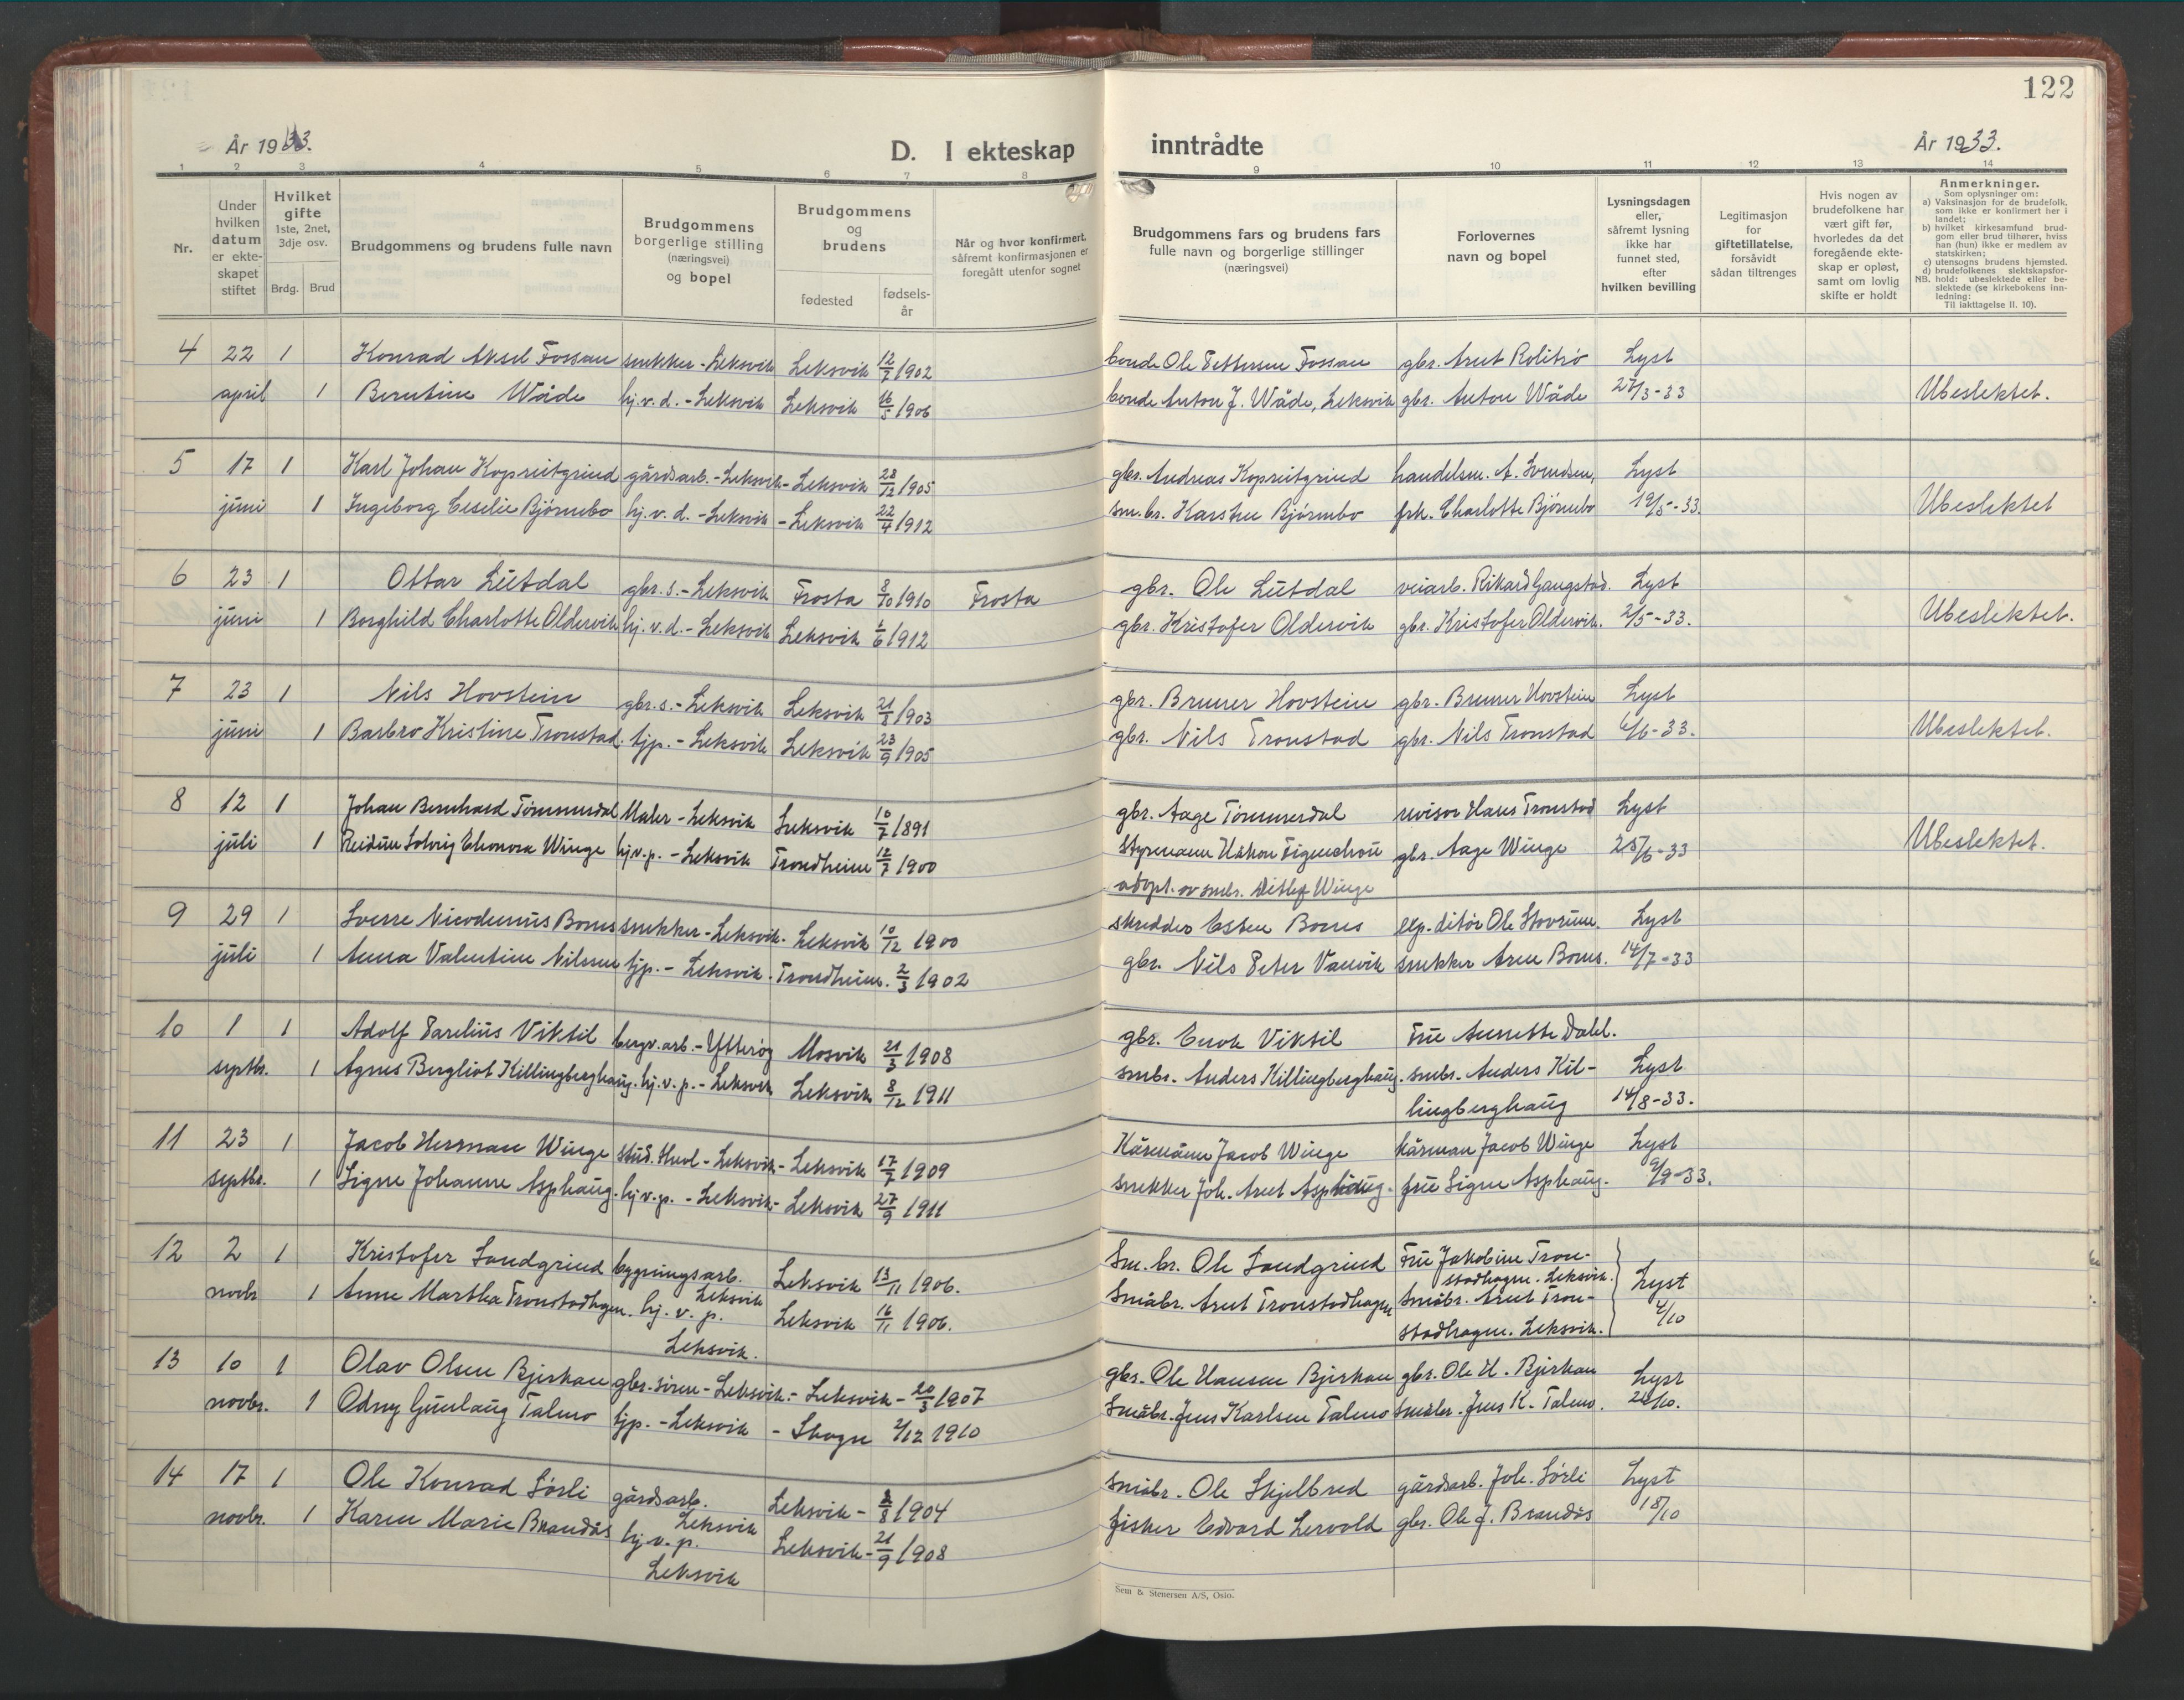 122
År 1933.
D. I ekteskap inntrådte
År 1933.
1 2 3 4 5 6 7 8 9 10 11 12 13 14
Nr.
Under hvilken datum er ekte-skapet stiftet
Hvilket gifte 1ste, 2net, 3dje osv.
Brdg. Brud
Brudgommens og brudens fulle navn
Brudgommens borgerlige stilling (næringsvei) og bopel
Brudgommens og brudens
fødested
fødsels-år
Når og hvor konfirmert, såfremt konfirmasjonen er foregått utenfor sognet
Brudgommens fars og brudens fars fulle navn og borgerlige stillinger (næringsvei)
Forlovernes navn og bopel
Lysningsdagen eller, såfremt lysning ikke har funnet sted, efter hvilken bevilling
Legitimasjon for giftetillatelse, forsåvidt sådan tiltrenges
Hvis nogen av brudefolkene har vært gift før, hvorledes da det foregående ekte-skap er opløst, samt om lovlig skifte er holdt
Anmerkninger.
Som oplysninger om:
a) Vaksinasjon for de brudefolk, som ikke er konfirmert her i landet;
b) hvilket kirkesamfund brud-gom eller brud tilhører, hviss han (hun) ikke er medlem av statskirken;
c) utensogns brudens hjemsted.
d) brudefolkenes slektskapsfor-
NB. hold: ubeslektede eller be-slektede (se kirkebokens inn-ledning:
Til iakttagelse II. 10).
4 22 1 Konrad Aksel Fossan snekker - Leksvik Leksvik 12/7 1902 bonde Ole Pettersen Fossan gbr. Arnt Rolitrø Lyst
april 1 Berntine Wåde hj.v.d. - Leksvik Leksvik 16/5 1906 bonde Anton J. Wåde, Leksvik gbr. Anton Wåde 27/3-33 Ubeslektet.
5 17 1 Karl Johan Kopreitgrind gårdsarb. - Leksvik - Leksvik 28/12 1905 gbr. Andreas Kopreitgrind handelsm. A. Svendsen, Lyst
juni 1 Ingeborg Cecilie Bjørnebo hj.v.d. - Leksvik - Leksvik 22/4 1912 sm.br. Karsten Bjørnebo frk. Charlotte Bjørnebo 19/5-33. Ubeslektet
6 23 1 Ottar Lutdal gbr.s. - Leksvik Frosta 8/10 1910 Frosta gbr. Ole Lutdal veiarb. Rikard Gangstad. Lyst
juni 1 Borghild Charlotte Oldervik hj.v.d. - Leksvik Leksvik 1/6 1912 gbr. Kristofer Oldervik gbr. Kristofer Oldervik. 2/5-33. Ubeslektet.
7 23 1 Nils Hovstein gbr.s. - Leksvik Leksvik 21/8 1903 gbr. Bruner Hovstein gbr. Bruner Hovstein Lyst
juni 1 Barbro Kristine Tronstad. tjp. - Leksvik Leksvik 23/9 1905 gbr. Nils Tronstad gbr. Nils Tronstad 6/6-33. Ubeslektet.
8 12 1 Johan Bernhard Tømmerdal Maler - Leksvik Leksvik 10/7 1891 gbr. Aage Tømmerdal revisor Hans Tronstad Lyst
juli 1 Reidun Solveig Eleonora Winge hj.v.p. - Leksvik Trondheim 12/7 1900 Styrmann Håkon Figenschou gbr. Aage Winge 25/6-33 Ubeslektet.
adopt. av smbr. Detlef Winge
9 29 1 Sverre Nicodemus Borns snekker - Leksvik. Leksvik 10/12 1900 skredder Esten Borns exp.ditør Ole Stovrum. Lyst
juli 1 Anna Valentine Nilssen tjp. - Leksvik. Trondheim. 2/3 1902 gbr. Nils Peter Vanvik snekker Arne Borns. 14/7-33
10 1 1 Adolf Parelius Viktil bergv.arb. - Ytterøy Mosvik 21/3 1908 gbr. Enok Viktil Fru Annette Dahl.
septbr. 1 Agnes Bergliot Killingberghaug. hj.v.p. - Leksvik Leksvik 8/12 1911 smbr. Anders Killingberghaug. smbr. Anders Kil- Lyst
lingberghaug 14/8-33.
11 23 1 Jacob Herman Winge stud. - Leksvik - Leksvik 17/7 1909 Kårmann Jacob Winge kårman Jacob Winge Lyst
septbr. 1 Signe Johanne Asphaug. hj.v.p. - Leksvik - Leksvik 27/9 1911 snekker Joh. Arnt Asphaug. fru Signe Asphaug. 9/9-33.
12 2 1 Kristofer Sandgrind bygningsarb. Leksvik Leksvik 13/11 1906. Sm.br. Ole Sandgrind Fru Jakobine Tron-
stadhagen. Leksvik.
novbr 1 Anne Martha Tronstadhagen. hj.v.p. Leksvik. Leksvik 16/11 1906. Småbr. Arnt Tronstadhagen Småbr. Arnt Tron-
stadhagen. Leksvik. Lyst 4/10
13 10 1 Olav Olsen Bjerkan gbr.sønn - Leksvik. - Leksvik - 20/3 1907 gbr. Ole Hansen Bjerkan gbr. Ole H. Bjerkan Lyst
novbr. 1 Odny Gunlaug Talmo tjp. - Leksvik - Skogn 2/12 1910 Småbr. Jens Karlsen Talmo Småbr. Jens K. Talmo. 24/10.
14 17 1 Ole Konrad Sørli gårdsarb. Leksvik Leksvik - 2/8 1904 Småbr. Ole Skjelbred gårdsarb. Joh. Sørli Lyst
novbr. 1 Karen Marie Brandås hj.v.p. Leksvik Leksvik - 21/9 1908 fisker Edvard Lervold gbr. Ole J. Brandås 18/10
Sem & Stenersen A/S, Oslo.